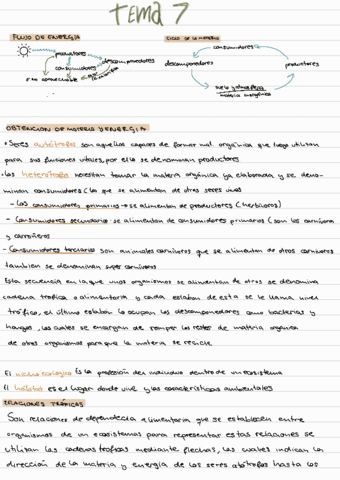 TEMA 7
FLUJO DE ENERGÍA
CICLO DE LA MATERIA
productores
consumidores
descomponedores
consumidores
descomponedores
productores
materia inorgánica
OBTENCION DE MATERIA Y ENERGIA
• Seres autótrofos son aquellos capaces de formar mat. orgánica que luego utilitan
para sus funciones vitales, por ello se denominan productores
• Los heterótrofos necesitan tomar la materia orgánica ya elaborada y se deno-
minan consumidores (los que se alimentan de otros seres vivos
- Los consumidores primarios → se alimentan de productores (herbívoros)
- Consumidores secundarios se alimentan de consumidores primarios (son los carnívoros
y carroñeros
- Consumidores terciarios son animales carnívoros que se alimentan de otros carnívoros
tambien se denominan super carnívoros
Esta secuencia en la que unos organismos se alimentan de otros se denomina
cadena trófica o alimentaria y cada eslabon de esta se le llama nivel
trófico, el último eslabon lo ocupan los descomponedores como bacterias y
hongos, los cuales se encargan de romper los restos de materia organica
de otros organismos para que la materia se recicle
El nicho ecológico es la profesión del individuo dentro de un ecosistema
El hábitat es el lugar donde vive y las características ambientales
RELACIONES TRÓFICAS
Son relaciones de dependecia alimentaria que se establecen entre
organismos de un ecosistemas para representar estas relaciones se
utilitan las cadenas troficas mediante flechas, las cuales indican la
dirección de la materia y energía de los seres autótrofos hasta los